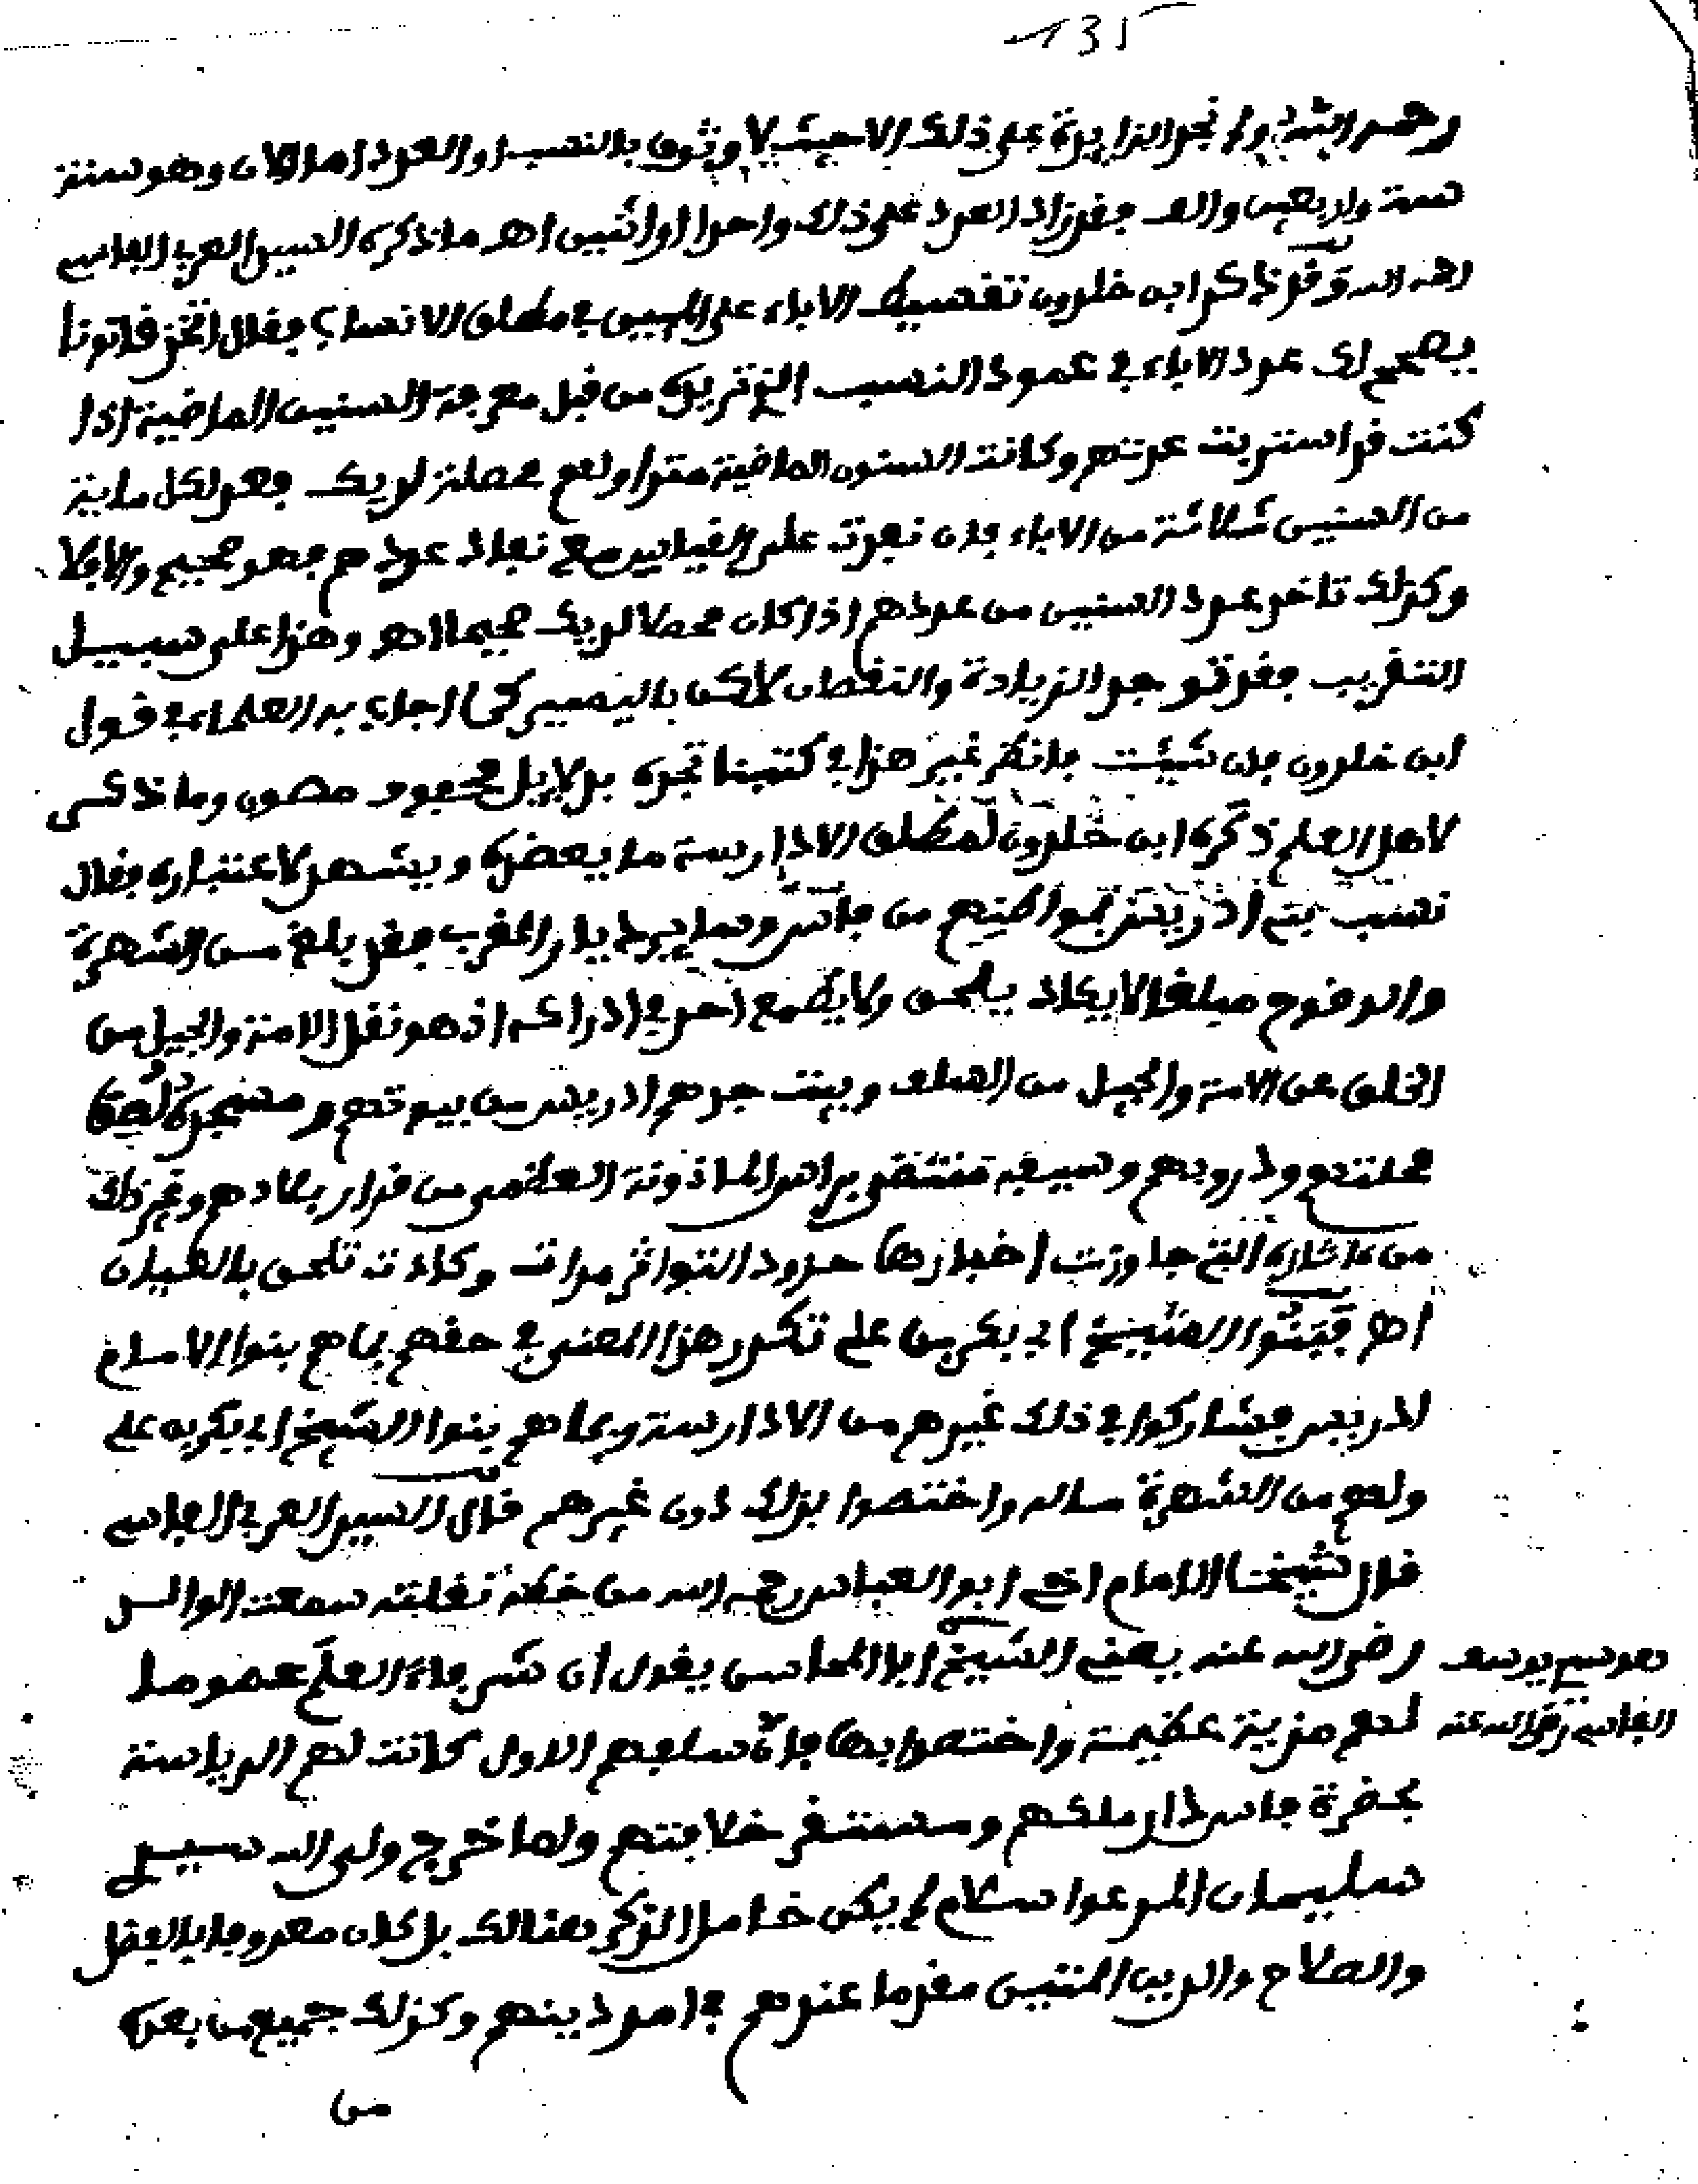 135
رحمه الله ولم نجد الزايد على ذلك الا حيث لا وثوق بالنسب او العدد اما الان وهو سنة
ستة واربعين والف فقد زاد العدد على ذلك واحدا او اثنين اهـ ما ذكره السيد العربي الفاسي
رحمه الله وقد ذكر ابن خلدون تقسيط الاباء على السنين في مطلق الانساب فقال اتخذ قانونا
يصحح لك عدد الاباء في عمود النسب الذي تريده من قبل معرفة السنين الماضية اذا
كنت قد استربت عدتهم وكانت السنون الماضية منذ اولهم محصلة لديك فعد لكل ماية
من السنين ثلاثة من الاباء فان نفدت على القياس مع نفاد عددهم فهو صحيح والا فلا
وكذلك تاخذ عدد السنين من عددهم اذا كان محصلا لديك صحيحا اهـ وهذا على سبيل
التقريب فقد توجد الزيادة والنقصان لاكن باليسير كما اجاب به العلماء في قول
ابن خلدون فان شيئت فانظر غير هذا في كتبنا تجده بدلايل محفوف مصون وما ذكر
لاهل العلم ذكره ابن خلدون لمطلق الادارسة ما يعضده ويشهد لاعتباره فقال
نسب بني ادريس بمواطنهم من فاس وساير ديار المغرب فقد بلغ من الشهرة
والوضوح مبلغا لا يكاد يلحق ولا يطمع احد في ادراكه اذ هو نقل الامة والجيل من
الخلف عن الامة والجيل من السلف وبيت جدهم ادريس من بيوتهم ومسجده لصق
محلتهم ودروبهم وسيفه منتضى براس الماذونة العظمى من قرار بلادهم وغير ذلك
من ءاثاره التي جاوزت اخبارها حدود التواتر مرات وكادت تلحق بالعيان
اهـ فبنوا الشيخ ابي بكر بن علي تكرر هذا المعنى في حقهم بما هم بنوا الامام
ادريس فشاركوا في ذلك غيرهم من الادارسة وبما هم بنوا الشيخ ابي بكر بن علي
ولهم من الشهرة ما له واختصوا بذلك دون غيرهم قال السيد العربي الفاسي
قال شيخنا الامام اخي ابو العباس رحمه الله من خطه نقلته سمعت الوالد
رضي الله عنه يعني الشيخ ابا المحاسن يقول ان شرفاء العلم عموما
هو سيدي يوسف
الفاسي رضي الله عنه
لهم مزية عظيمة واختصوا بها فان سلفهم الاول كانت لهم الرياسة
بحضرة فاس دار ملكهم ومستقر خلافتهم ولما خرج ولي الله سيدي
سليمان المدعوا سلام لم يكن خامل الذكر هنالك بل كان معروفا بالفضل
والصلاح والدين المتين مقدما عندهم في امور دينهم وكذلك جميع من بعده
من